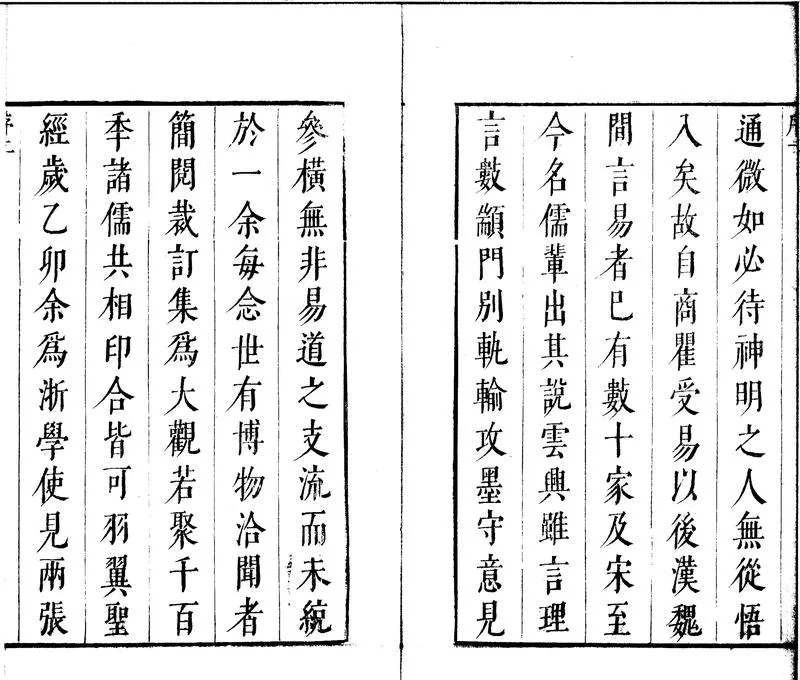 通微如必待神明之人無從悟
入矣故自商瞿受易以後漢魏
間言易者已有數十家及宋至
今名儒輩出其説雲興雖言理
言數顓門别軌輸攻墨守意見
參橫無非易道之支流而未統
於一余每念世有博物洽聞者
簡閱裁訂集爲大觀若聚千百
季諸儒共相印合皆可羽翼聖
經歲乙卯余爲浙學使見兩張